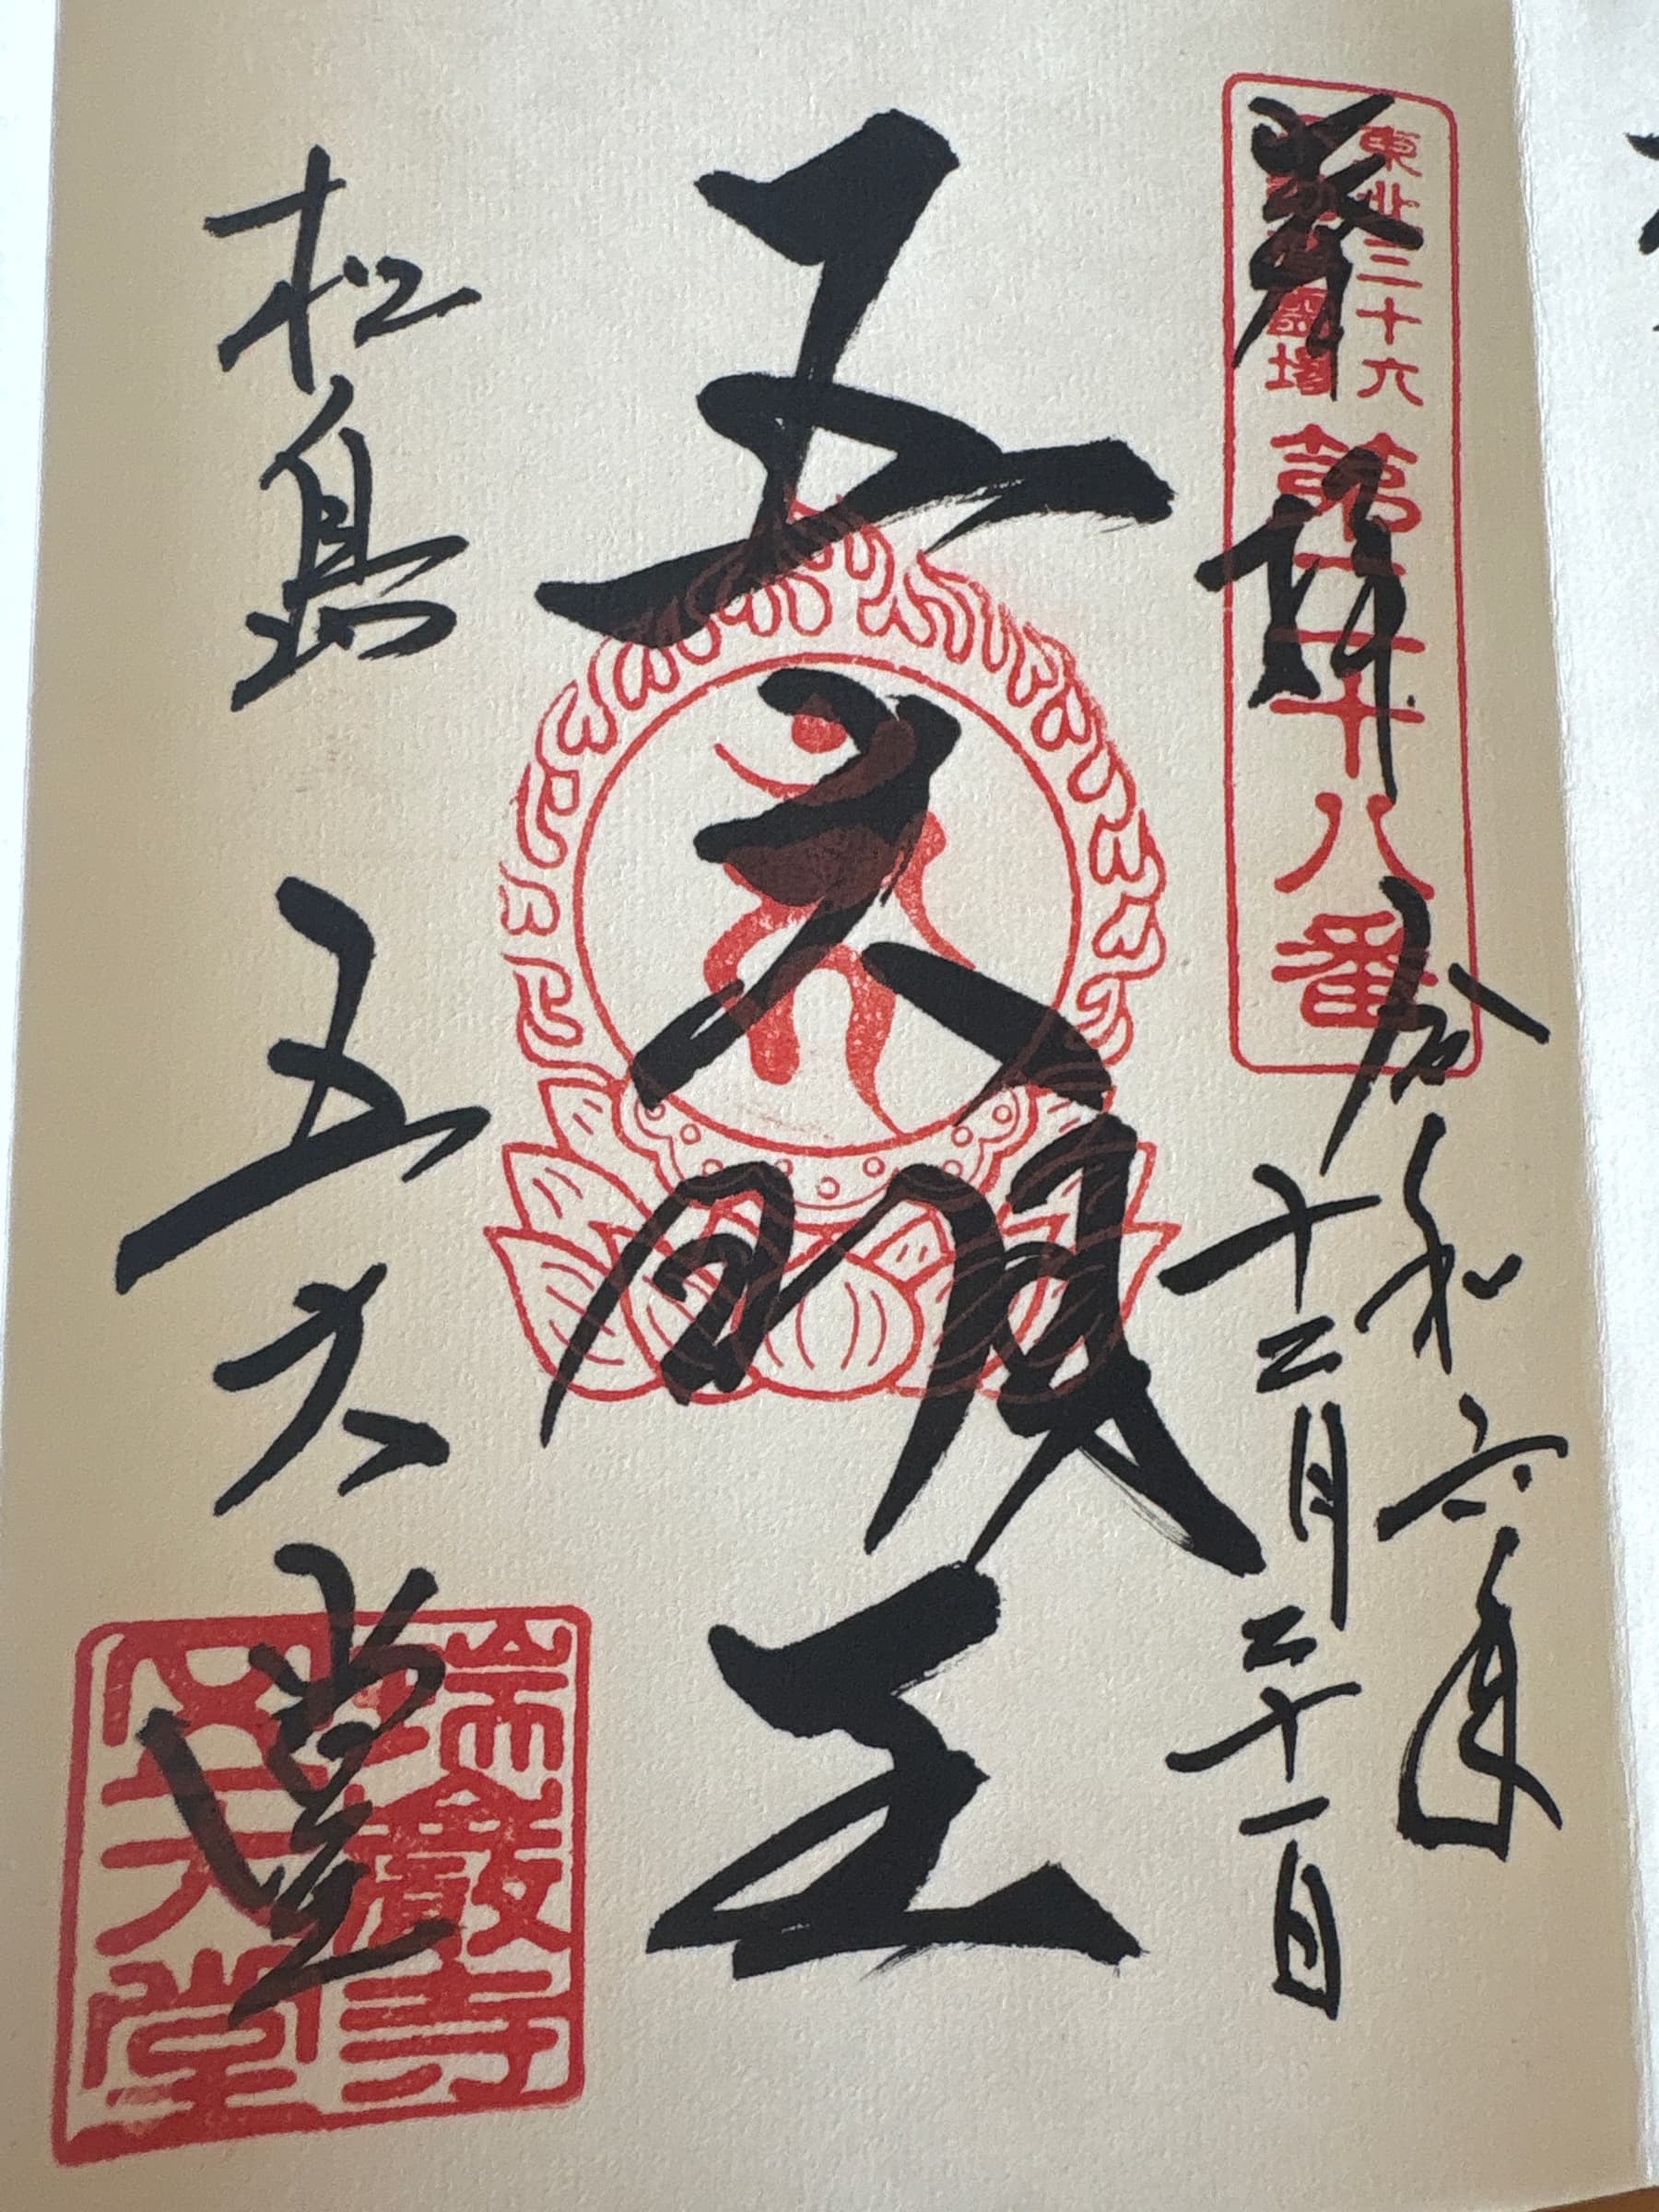 奉拝
東北三十六
不動尊霊場
第二十八番
令和六年
十二月二十一日
五大明王
松島
五大堂
瑞巌寺
五大堂